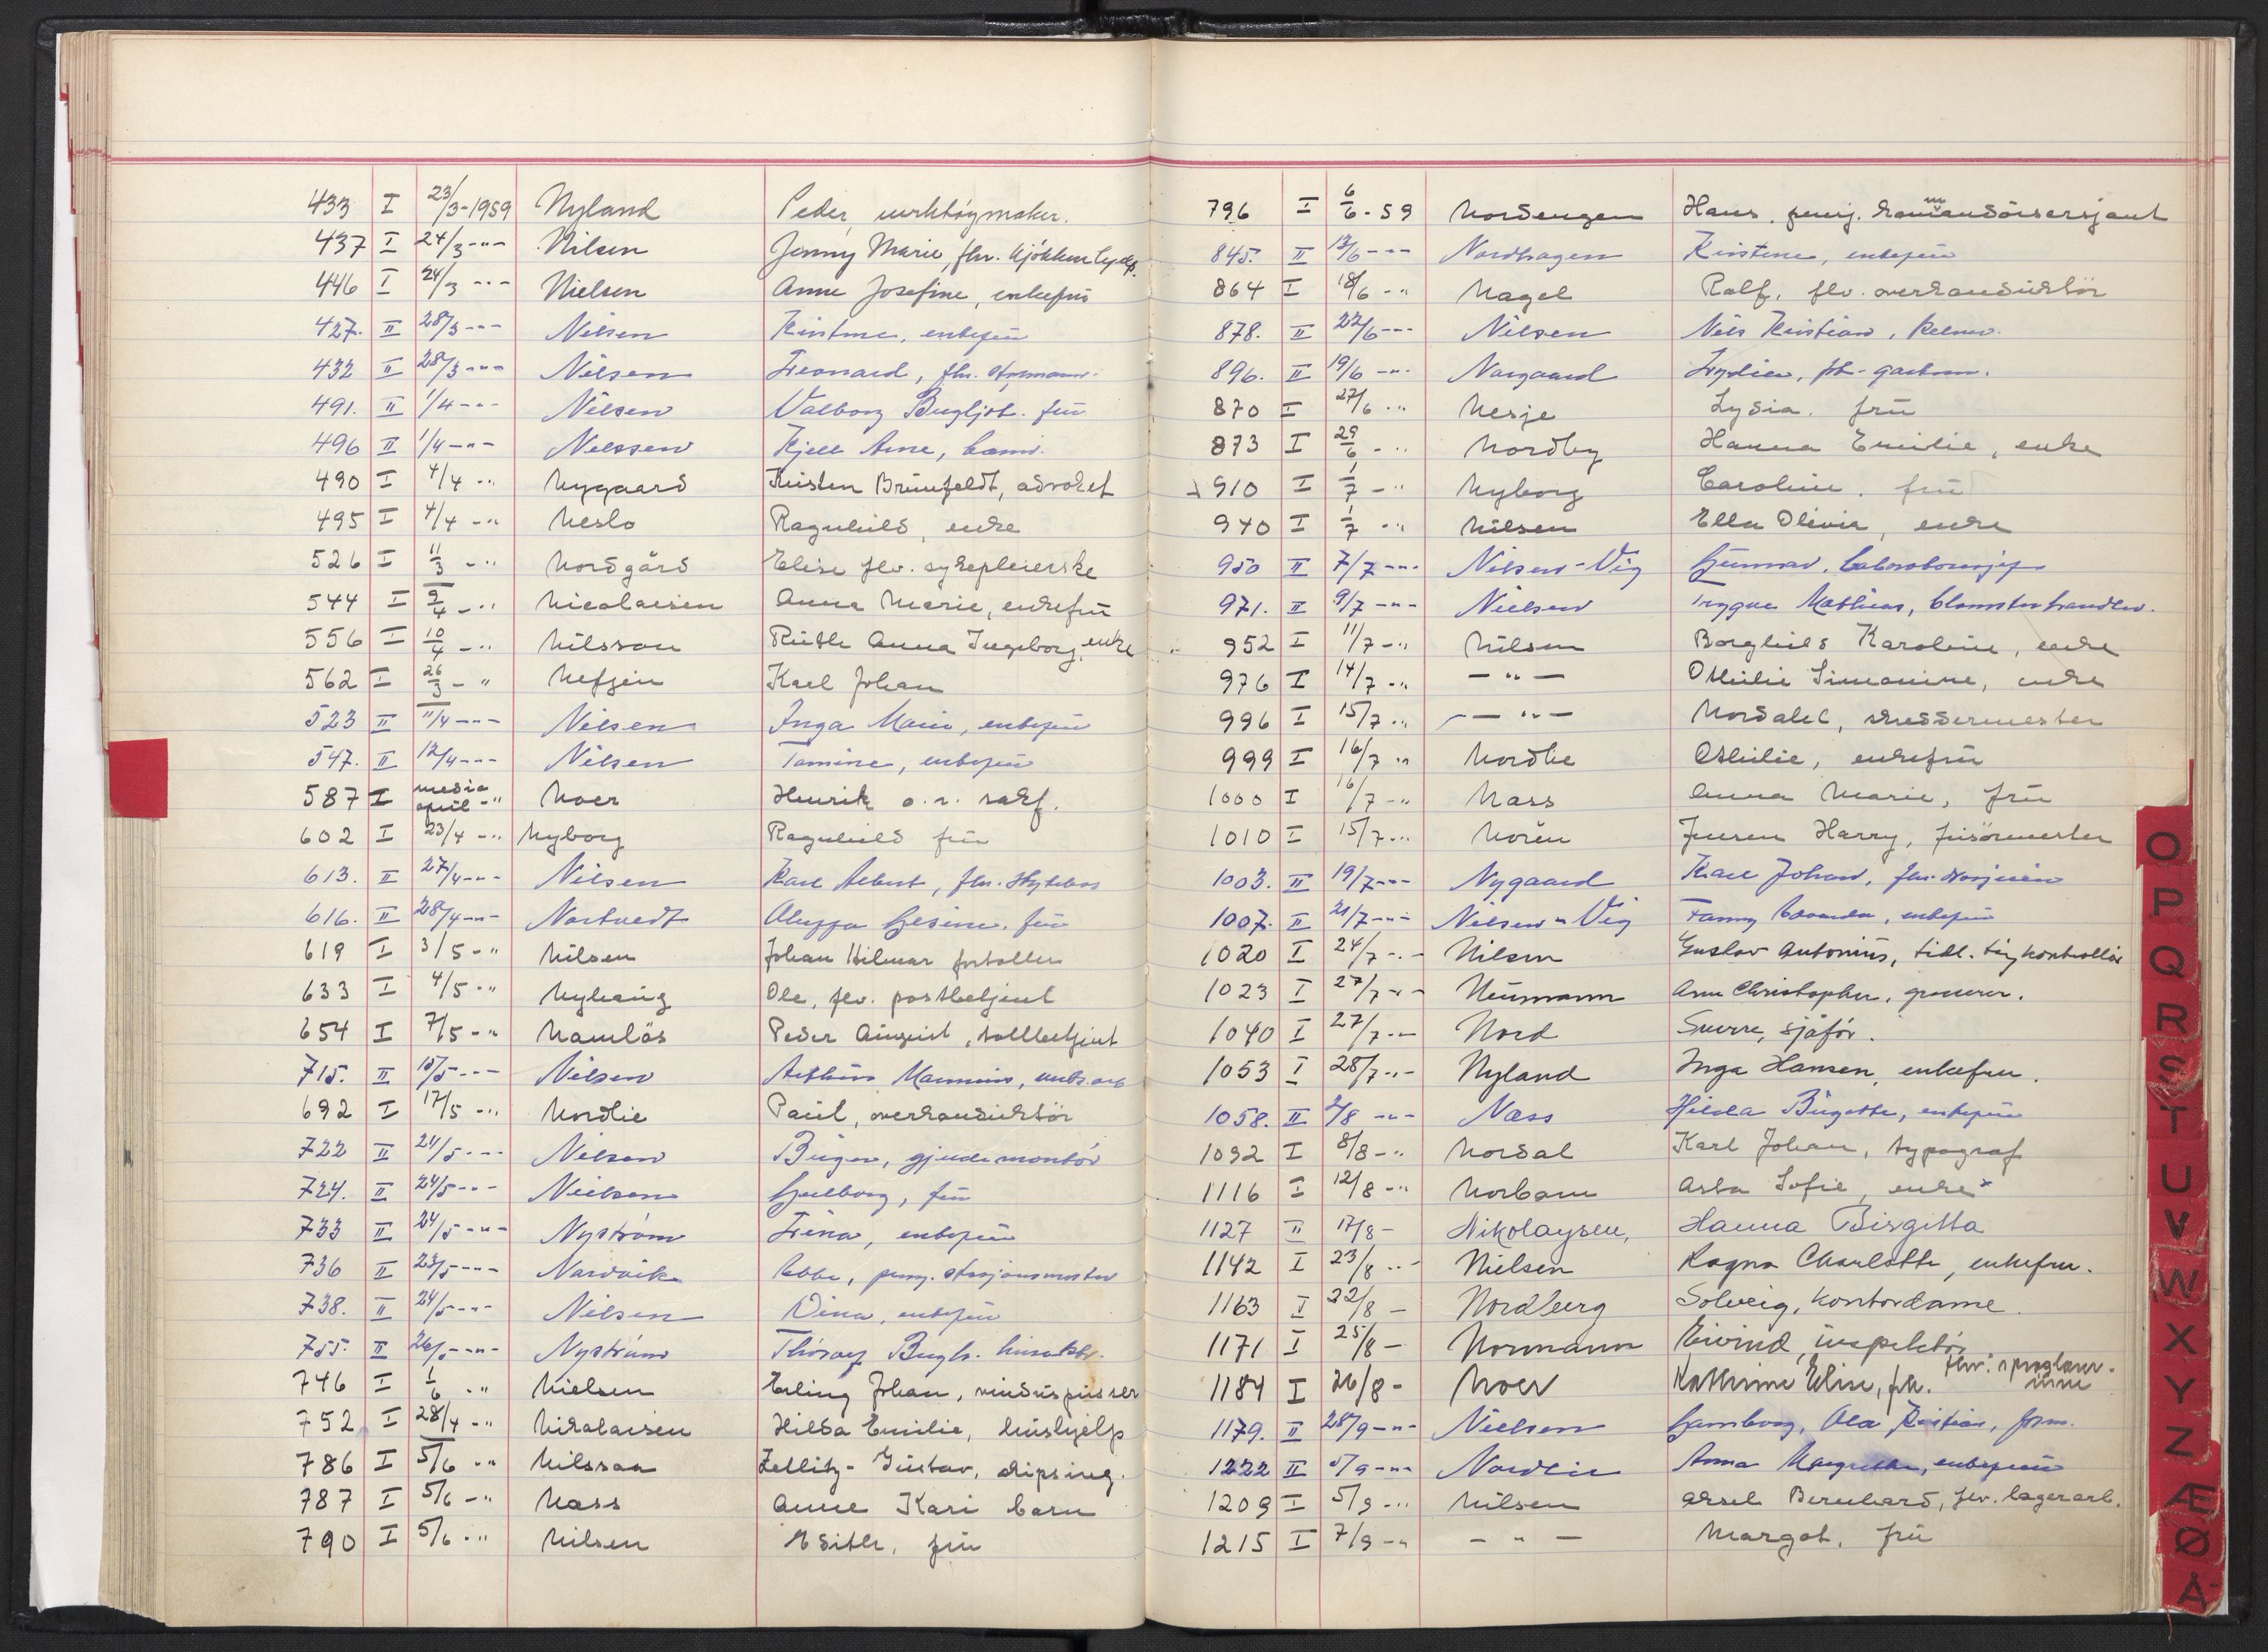 433 I 23/3-1959 Nyland Peder, verktøymaker.
437 I 24/3 -"- Nilsen Jenny Marie, fhv. kjøkken
446 I 24/3 -"- Nielsen Anne Josefine, enkefrú
427. II 28/3 -"- Nilsen Kristine, enkefrú
432 II 28/3 -"- Nilsen Leonard, fhv. stuemann.
491. II 1/4 -"- Nilsen Valborg Bergljot. frú
496 II 1/4 -"- Nilssen Kjell Arne, barn.
490 I 4/4 -" Nygaard Kristen Brúnfeldt, advokat
495 I 4/4 -" Neslo Ragnhild, enke
526 I 11/3 -" Nordgård Elise flv. sykepleierske
544 I 9/4 -" Nicolaisen Anna Marie, enkefrú
556 I 10/4 -" Nilsson Rúth Anna Ingeborg, enke
562 I 26/3 - " Karl Johan
523 II 11/4 -"- Nilsen Inga Marie, enkefrú
547. II 12/4 -"- Nilsen Tomine, enkefrú
587 I medio april -" Noer Henrik o.r. sakf.
602 I 23/4 -" Nyborg Ragnhild frú
613. II 27/4 -"- Nilsen Karl Albert, fhv.
616. II 28/4 -"- Nortvedt Gesine, frú
619 I 3/5 -" Nilsen Johan Hilmar fortoller
633 I 4/5 -" Nyhaúg Ole, flv. postbetjent
654 I 7/5 -" Namløs Peder Aúgúst, tollbetjent
715. II 15/5 -"- Nilsen
692 I 17/5 -" Nordlie Paúl, overkondúktør
722 II 21/5 -"- Nilsen Birger, montør
724. II 24/5 -"- Nielsen frú
733 II 24/5 -"- Nystrøm Lina, enkefrú
736 II 23/5 -"- Narvik Ebbe, pensj. stasjonsmester
738. II 24/5 -"- Nilsen Dina, enkefrú
755. II 26/5 -"- Nystrøm
746 I 1/6 -" Nielsen Erling Johan, vindúspússer
752 I 28/4 -" Nikolaisen Hilda Emilie, húshjelp
786 I 5/6 -" Nilsson Zellitz- Gústav, skipsing.
787 I 5/6 -" Næss Anne Kari barn
790 I 5/6 -" Nilsen Edith, frú
796 I 6/6 - 59 Nordengen Hans, pensj. kommandørsersjant
845. II 13/6 -"- Nordhagen Kirstine, enkefrú
864 I 18/6 -" Nagel Ralf, flv. overkondúktør
878. II 22/6 -"- Nilsen Nils Kristian, kelner.
896. II 19/6 -"- Norgaard Lydia, fhv.
870 I 27/6 -" Nesje Lydia, frú
873 I 29/6 -" Nordby Hanna Emilie, enke
910 I 1/7 -" Nyborg Caroline, frú
940 I 1/7 -" Nilsen Ella Olivia, enke
950 II 7/7 -"- Nilsen-Vig Gúnnar, laboratoriesjef
971. II 9/7 -"- Nielsen Trygve Mathias, blomsterhandler.
952 I 11/7 -" Nilsen Borghild Karoline, enke
976 I 14/7 -" — " — Othilie Simonine, enke
996 I 15/7 -" — " — Nordahl, skreddermester
999 I 16/7 -" Nordbe Othilie, enkefrú
1000 I 16/7 -" Næss Anna Marie, frú
1010 I 15/7 -" Norén Jensen Harry, frisørmester
1003. II 19/7 -"- Nygaard Karl Johan, fhv.
1007. II 21/7 -"- Nilsen-Vig Fanny enkefrú
1020 I 24/7 -"- Nilsen Gustav Antoniús, tidl. tøykontrollør
1023 I 27/7 -"- Neúmann Arne Christopher, grosserer.
1040 I 27/7 -"- Nord Sverre, sjåfør.
1053 I 28/7 -"- Nyland Inga Hansen, enkefru.
1058. II 2/8 -"- Næss Hilda Birgitte, enkefrú
1092 I 8/8 -" Nordal Karl Johan, typograf
1116 I 12/8 -" Norbom Asta Sofie, enke
1127 II 17/8 - Nikolaysen, Hanna Birgitta
1142 I 23/8 -"- Nielsen Ragna Charlotte, enkefru.
1163 I 22/8 - Nordberg Solveig, kontordame.
1171 I 25/8 - Normann Eivind, inspektør
1184 I 26/8 - Noer Kathrine Elise, frk. fhv. språklærerinne
1179. II 28/9 -"- Nielsen Ola Kristian, form.
1222 II 5/9 -"- Nordlie Anna Margrethe, enkefrú
1209 I 5/9 -" Nilsen Aksel Bernhard, flv. lagerarb.
1215 I 7/9 -" — " — Margot, frú
O
P
Q
R
S
T
U
V
W
X
Y
Z
Æ
Ø
Å